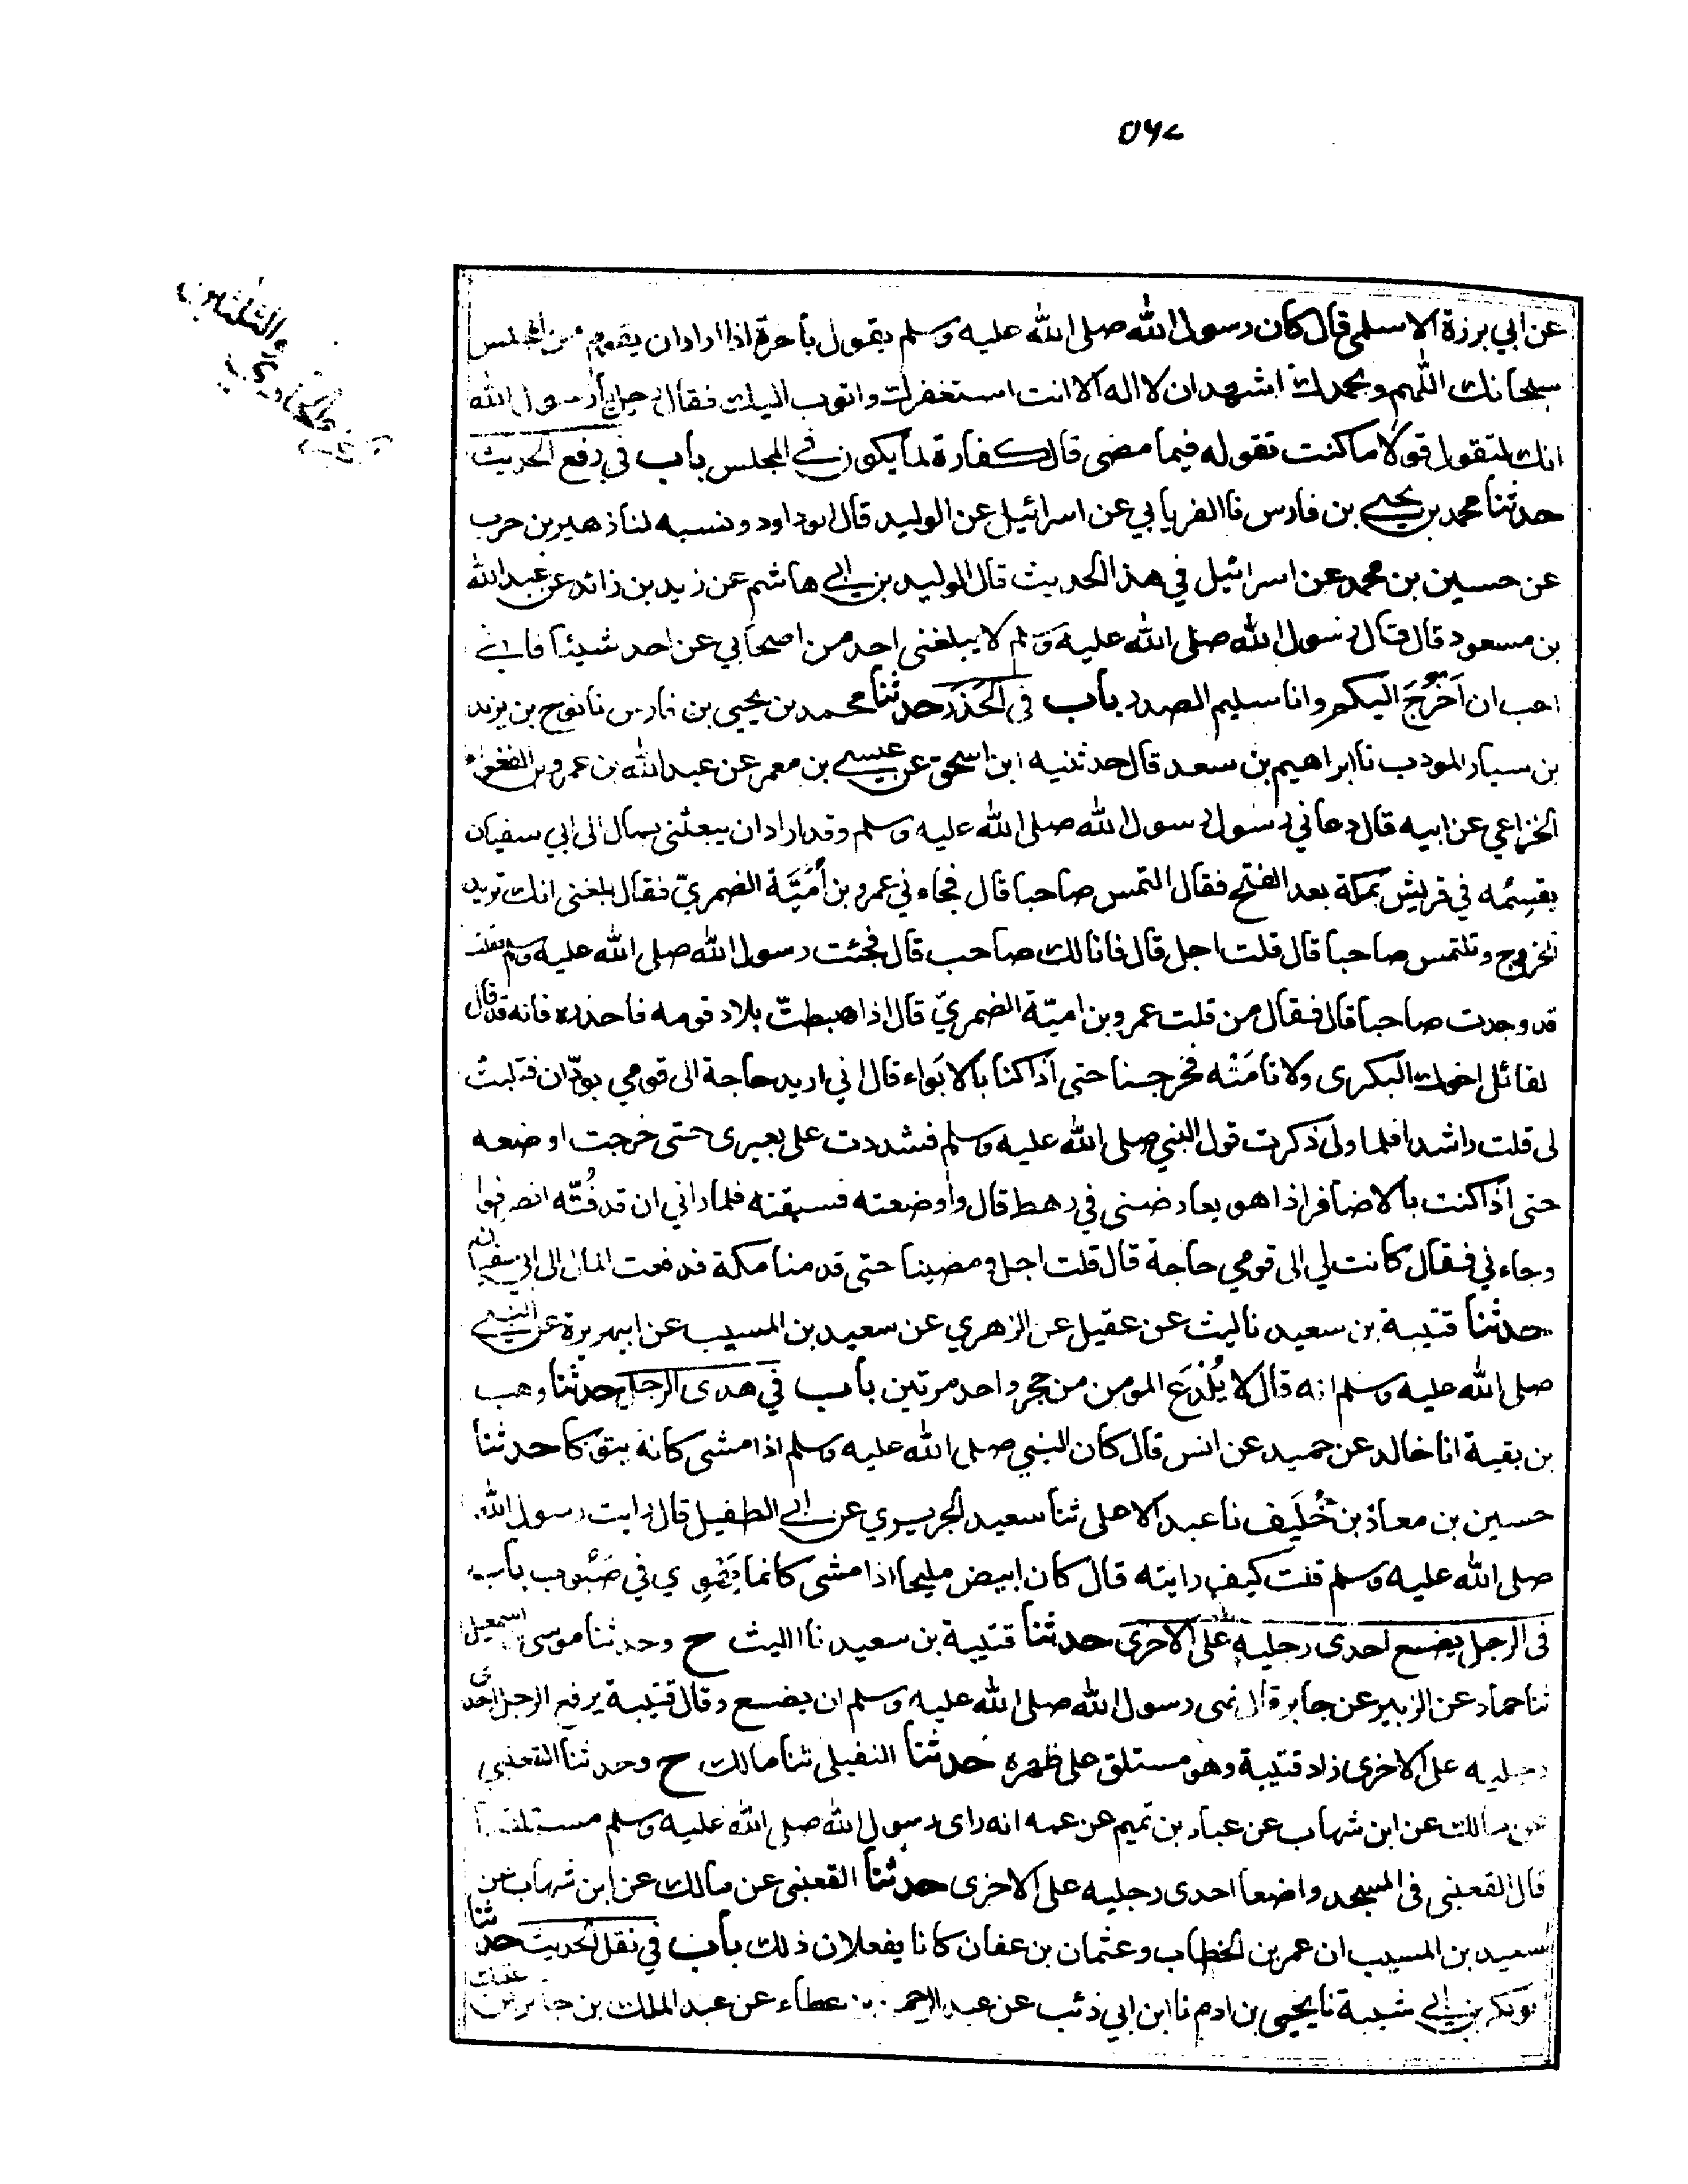 ٥٧٢
عن ابي برزة الاسلمي قال كان رسول الله صلى الله عليه وسلم يقول بأخرة اذا اراد ان يقوم من المجلس
سبحانك اللهم وبحمدك اشهد ان لا اله الا انت استغفرك واتوب اليك فقال رجل يا رسول الله
انك لتقول قولا ما كنت تقوله فيما مضى قال كفارة لما يكون في المجلس باب في رفع الحديث
حدثنا محمد بن يحيى بن فارس نا الفريابي عن اسرائيل عن الوليد قال ابو داود ونسبه لنا زهير بن حرب
عن حسين بن محمد عن اسرائيل في هذا الحديث قال الوليد بن ابي هاشم عن زيد بن زائد عن عبد الله
بن مسعود قال قال رسول الله صلى الله عليه وسلم لا يبلغني احد من اصحابي عن احد شيئا فاني
احب ان اَخْرُجَ اليكم وانا سليم الصدر باب في الحَذَر حدثنا محمد بن يحيى بن فارس نا نوح بن يزيد
بن سيار المودب نا ابراهيم بن سعد قال حدثنيه ابن اسحق عن عيسى بن معمر عن عبد الله بن عمرو بن الفغواء
الخزاعي عن ابيه قال دعاني رسول رسول الله صلى الله عليه وسلم وقد اراد ان يبعثني بمال الى ابي سفيان
يقسِمُه في قريش بمكة بعد الفتح فقال التمس صاحبا قال فجاءني عمرو بن اُمَيَّة الضمريّ فقال بلغني انك تريد
الخروج وتلتمس صاحبا قال قلت اجل قال فانا لك صاحب قال فجئت رسول الله صلى الله عليه وسلم فقلت
قد وجدت صاحبا قال فقال من قلت عمرو بن اميّة الضمريّ قال اذا هبطتّ بلاد قومه فاحذره فانه قد قال
لقائل اخوك البكرى ولا تامَنْه فخرجنا حتى اذا كنا بالابَواء قال اني اريد حاجة الى قومي بودّان فتلبث
لى قلت راشدا فلما ولى ذكرت قول النبي صلى الله عليه وسلم فشددت على بعيرى حتى خرجت اوضعه
حتى اذا كنت بالاضافر اذا هو يعارضنى في رهط قال واوضعته فسبقته فلما راني ان قد فُتّه انصرفوا
وجاءني فقال كانت لي الى قومي حاجة قال قلت اجل ومضينا حتى قدمنا مكة فدفعت المال الى ابي سفيان
حدثنا قتيبة بن سعيد نا ليث عن عقيل عن الزهري عن سعيد بن المسيب عن ابيهريرة عن النبي
صلى الله عليه وسلم انه قال لا يُلْدَغ المومن من جحر واحد مرتين باب في هدى الرجل حدثنا وهب
بن بقية انا خالد عن حميد عن انس قال كان النبي صلى الله عليه وسلم اذا مشى كانه يتوكا حدثنا
حسين بن معاذ بن خُلَيف نا عبد الاعلى ثنا سعيد الجريري عن ابي الطفيل قال رايت رسول الله
صلى الله عليه وسلم قلت كيف رايته قال كان ابيض مليحا اذا مشى كانما يَهْوِي في صَبُوب باب
في الرجل يضع احدى رجليه على الاخرى حدثنا قتيبة بن سعيد نا الليث ح وحدثنا موسى بن اسمعيل
ثنا حماد عن الزبير عن جابر قال نهى رسول الله صلى الله عليه وسلم ان يضع وقال قتيبة يرفع الرجل احدى
رجليه على الاخرى زاد قتيبة وهو مستلق على ظهره حدثنا النفيلي ثنا مالك ح وحدثنا القعنبي
عن مالك عن ابن شهاب عن عباد بن تميم عن عمه انه راى رسول الله صلى الله عليه وسلم مستلقيا
قال القعنبي في المسجد واضعا احدى رجليه على الاخرى حدثنا القعنبي عن مالك عن ابن شهاب عن
سعيد بن المسيب ان عمر بن الخطاب وعثمان بن عفان كانا يفعلان ذلك باب في نقل الحديث حدثنا
بوبكر بن ابي شيبة نا يحيى بن ادم نا ابن ابي ذئب عن عبد الرحمن بن عطاء عن عبد الملك بن جابر بن عتيك